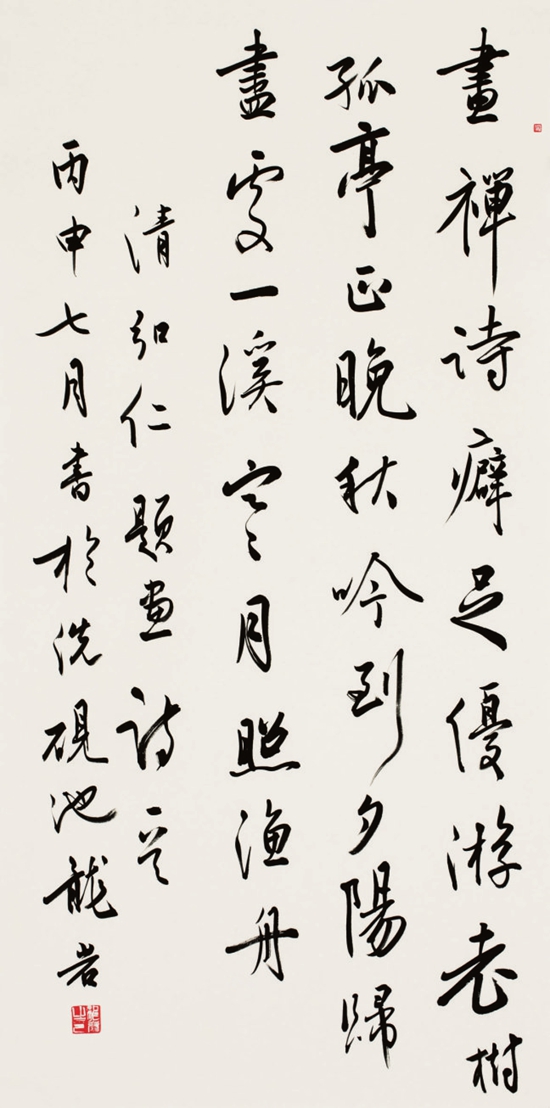 畫禪詩癖足優游老樹
孤亭正晚秋吟到夕陽歸
盡處一溪寒月照漁舟
清弘仁題畫詩一首
丙申七月書於洗硯池龍岩